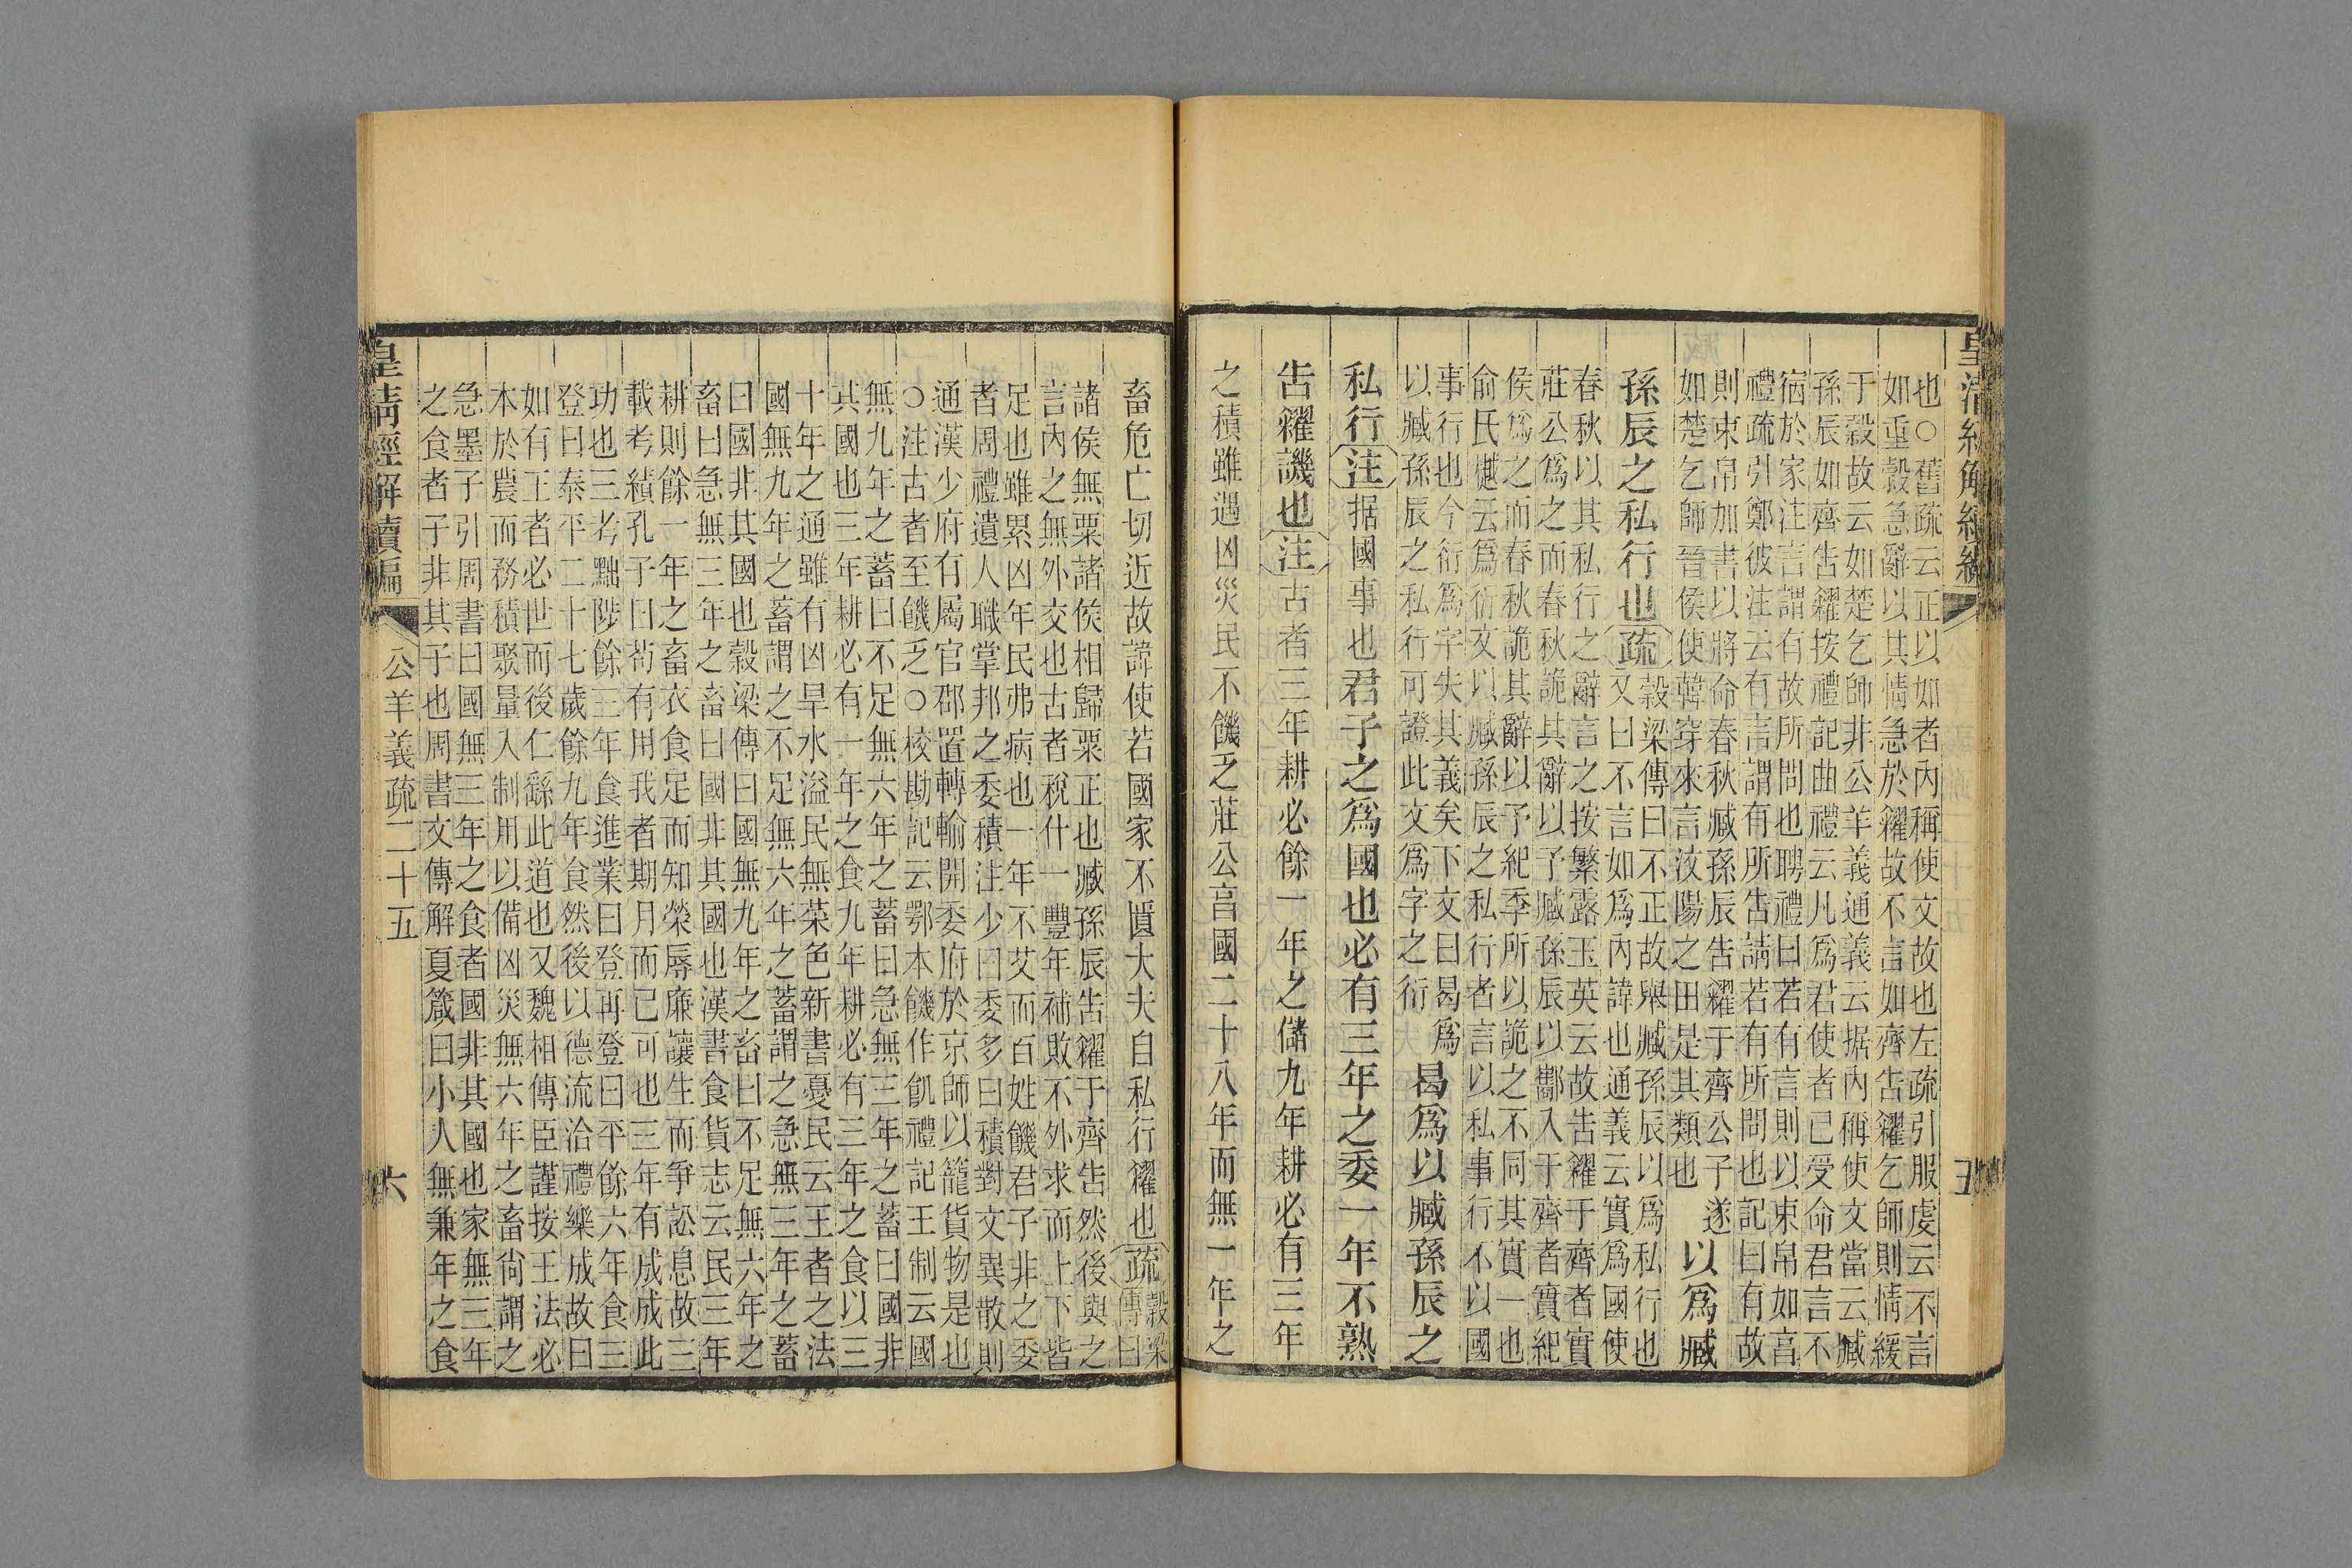 皇清經解續編
五
也○舊疏云正以如者內稱使文故也左疏引服虔云不言
如重穀急辭以其情急於糴故不言如齊告糴乞師則情緩
于穀故云如楚乞師非公羊義通義云据內稱使文當云臧
孫辰如齊告糴按禮記曲禮云凡爲君使者已受命君言不
宿於家注言謂有故所問也聘禮曰若有言則以束帛如享
禮疏引鄭彼注云有言謂有所告請若有所問也記曰有故
則束帛加書以將命春秋臧孫辰告糴于齊公子遂
如楚乞師晉侯使韓穿來言汶陽之田是其類也
以爲臧
孫辰之私行也疏
穀梁傳曰不正故舉臧孫辰以爲私行也
又曰不言如爲內諱也通義云實爲國使
春秋以其私行之辭言之按繁露玉英云故告糴于齊者實
莊公爲之而春秋詭其辭以予臧孫辰以酅入于齊者實紀
侯爲之而春秋詭其辭以予紀季所以詭之不同其實一也
俞氏樾云爲衍文以臧孫辰之私行者言以私事行不以國
事行也今衍爲字失其義矣下文曰曷爲
以臧孫辰之私行可證此文爲字之衍
曷爲以臧孫辰之
私行注据國事也君子之爲國也必有三年之委一年不熟
告糴譏也注古者三年耕必餘一年之儲九年耕必有三年
之積雖遇凶災民不饑乏莊公享國二十八年而無一年之
畜危亡切近故諱使若國家不匱大夫自私行糴也疏
穀梁
傳曰
諸侯無粟諸侯相歸粟正也臧孫辰告糴于齊告然後與之
言內之無外交也古者稅什一豐年補敗不外求而上下皆
足也雖累凶年民弗病也一年不艾而百姓饑君子非之委
者周禮遺人職掌邦之委積注少曰委多曰積對文異散則
通漢少府有屬官郡置轉輸開委府於京師以籠貨物是也
○注古者至饑乏○校勘記云鄂本饑作飢禮記王制云國
無九年之蓄曰不足無六年之蓄曰急無三年之蓄曰國非
其國也三年耕必有一年之食九年耕必有三年之食以三
十年之通雖有凶旱水溢民無菜色新書憂民云王者之法
國無九年之蓄謂之不足無六年之蓄謂之急無三年之蓄
曰國非其國也穀梁傳曰國無九年之畜曰不足無六年之
畜曰急無三年之畜曰國非其國也漢書食貨志云民三年
耕則餘一年之畜衣食足而知榮辱廉讓生而爭訟息故三
載考績孔子曰苟有用我者期月而已可也三年有成成此
功也三考黜陟餘三年食進業曰登再登曰平餘六年食三
登曰泰平二十七歲餘九年食然後以德流洽禮樂成故曰
如有王者必世而後仁繇此道也又魏相傳臣謹按王法必
本於農而務積聚量入制用以備凶災無六年之畜尙謂之
急墨子引周書曰國無三年之食者國非其國也家無三年
之食者子非其子也周書文傳解夏箴曰小人無兼年之食
皇清經解續編
公羊義疏二十五
六